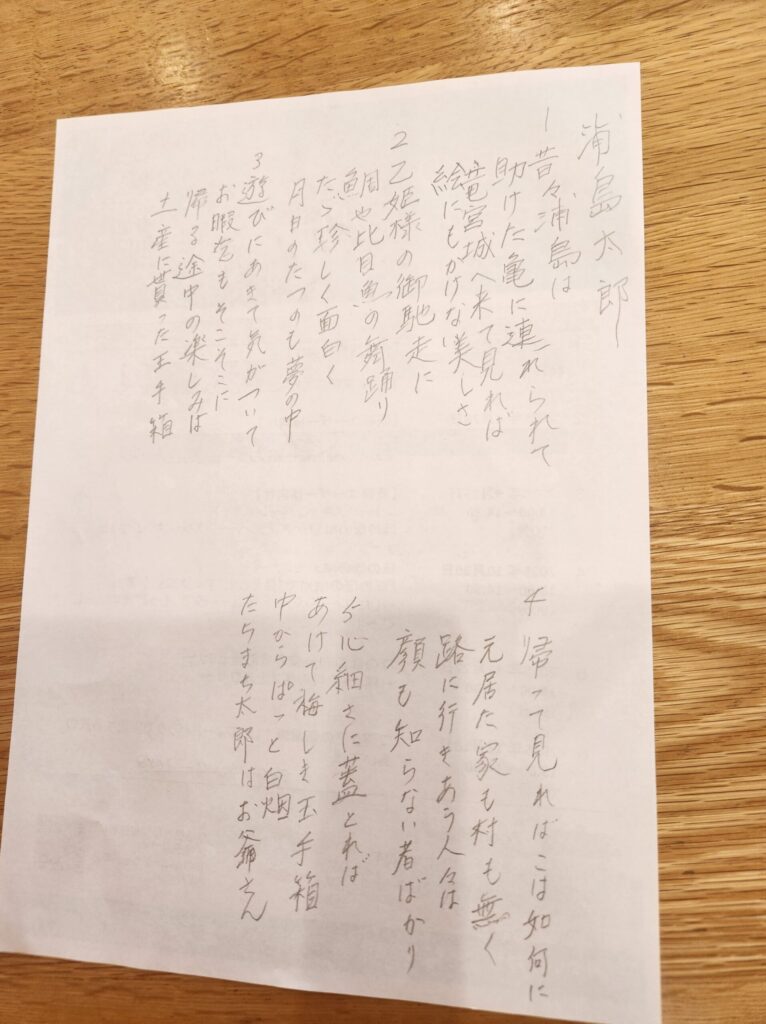 浦島太郎
1 昔々浦島は
助けた亀に連れられて
竜宮城へ来て見れば
絵にもかけない美しさ
2 乙姫様の御馳走に
鯛や比目魚の舞踊り
ただ珍しく面白く
月日のたつのも夢の中
3 遊びにあきて気がついて
お暇乞もそこそこに
帰る途中の楽しみは
土産に貰った玉手箱
4 帰って見ればこは如何に
元居た家も村も無く
路に行きあう人々は
顔も知らない者ばかり
5 心細さに蓋とれば
あけて悔しき玉手箱
中からぱっと白烟
たちまち太郎はお爺さん